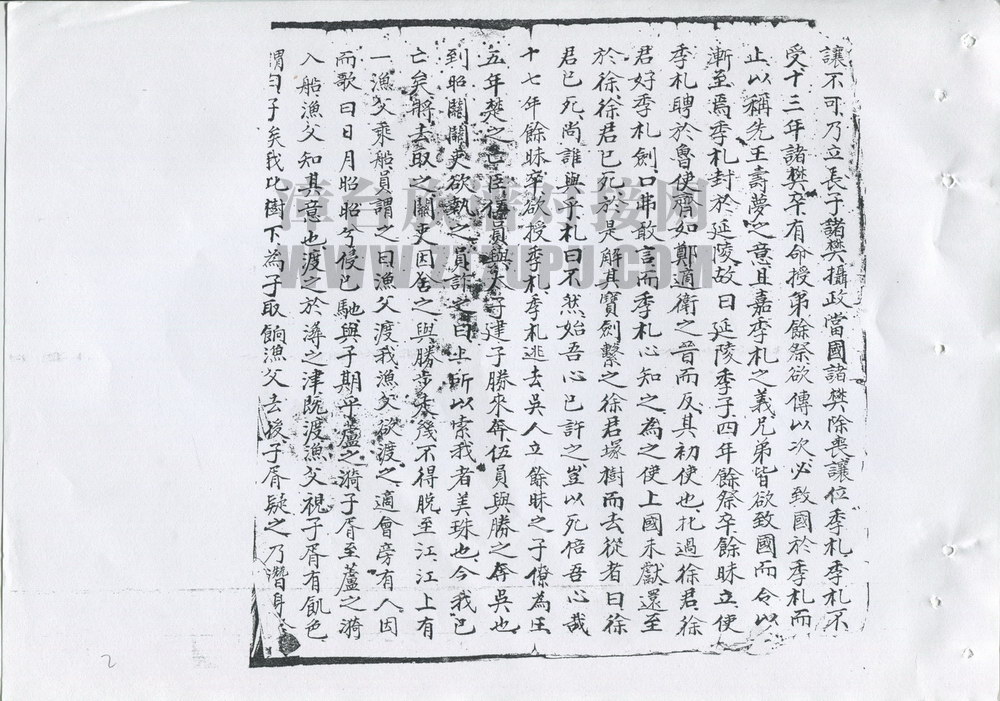 讓不可乃立長子諸樊攝政當國諸樊除喪讓位季札季札不
受十三年諸樊卒有命授弟餘祭欲傳以次必致國於季札而
止以稱先王壽夢之意且嘉季札之義兄弟皆欲致國而令以
漸至焉季札封於延陵故曰延陵季子四年餘祭卒餘昧立使
季札聘於魯使齊如鄭適衛之晉而反其初使也札過徐君徐
君好季札劍口弗敢言而季札心知之為之使上國未獻還至
於徐徐君已死於是解其寶劍繫之徐君塚樹而去從者曰徐
君已死尚誰與乎札曰不然始吾心已許之豈以死倍吾心哉
十七年餘昧卒欲授季札季札逃去吳人立餘昧之子僚為王
五年楚之亡臣伍員與太子建子勝來奔伍員與勝之奔吳也
到昭關關吏欲執之員詐之曰上所以索我者美珠也今我已
亡矣將去取之關吏因舍之與勝步走幾不得脫至江江上有
一漁父乘船員謂之曰漁父渡我漁父欲渡之適會旁有人因
而歌曰日月昭昭兮侵已馳與子期乎蘆之漪子胥至蘆之漪
入船漁父知其意也渡之於潯之津既渡漁父視子胥有飢色
謂曰子矣我此樹下為子取餉漁父去後子胥疑之乃潛身
漳台族譜对接网
WWW.ZTZUPU.COM
2